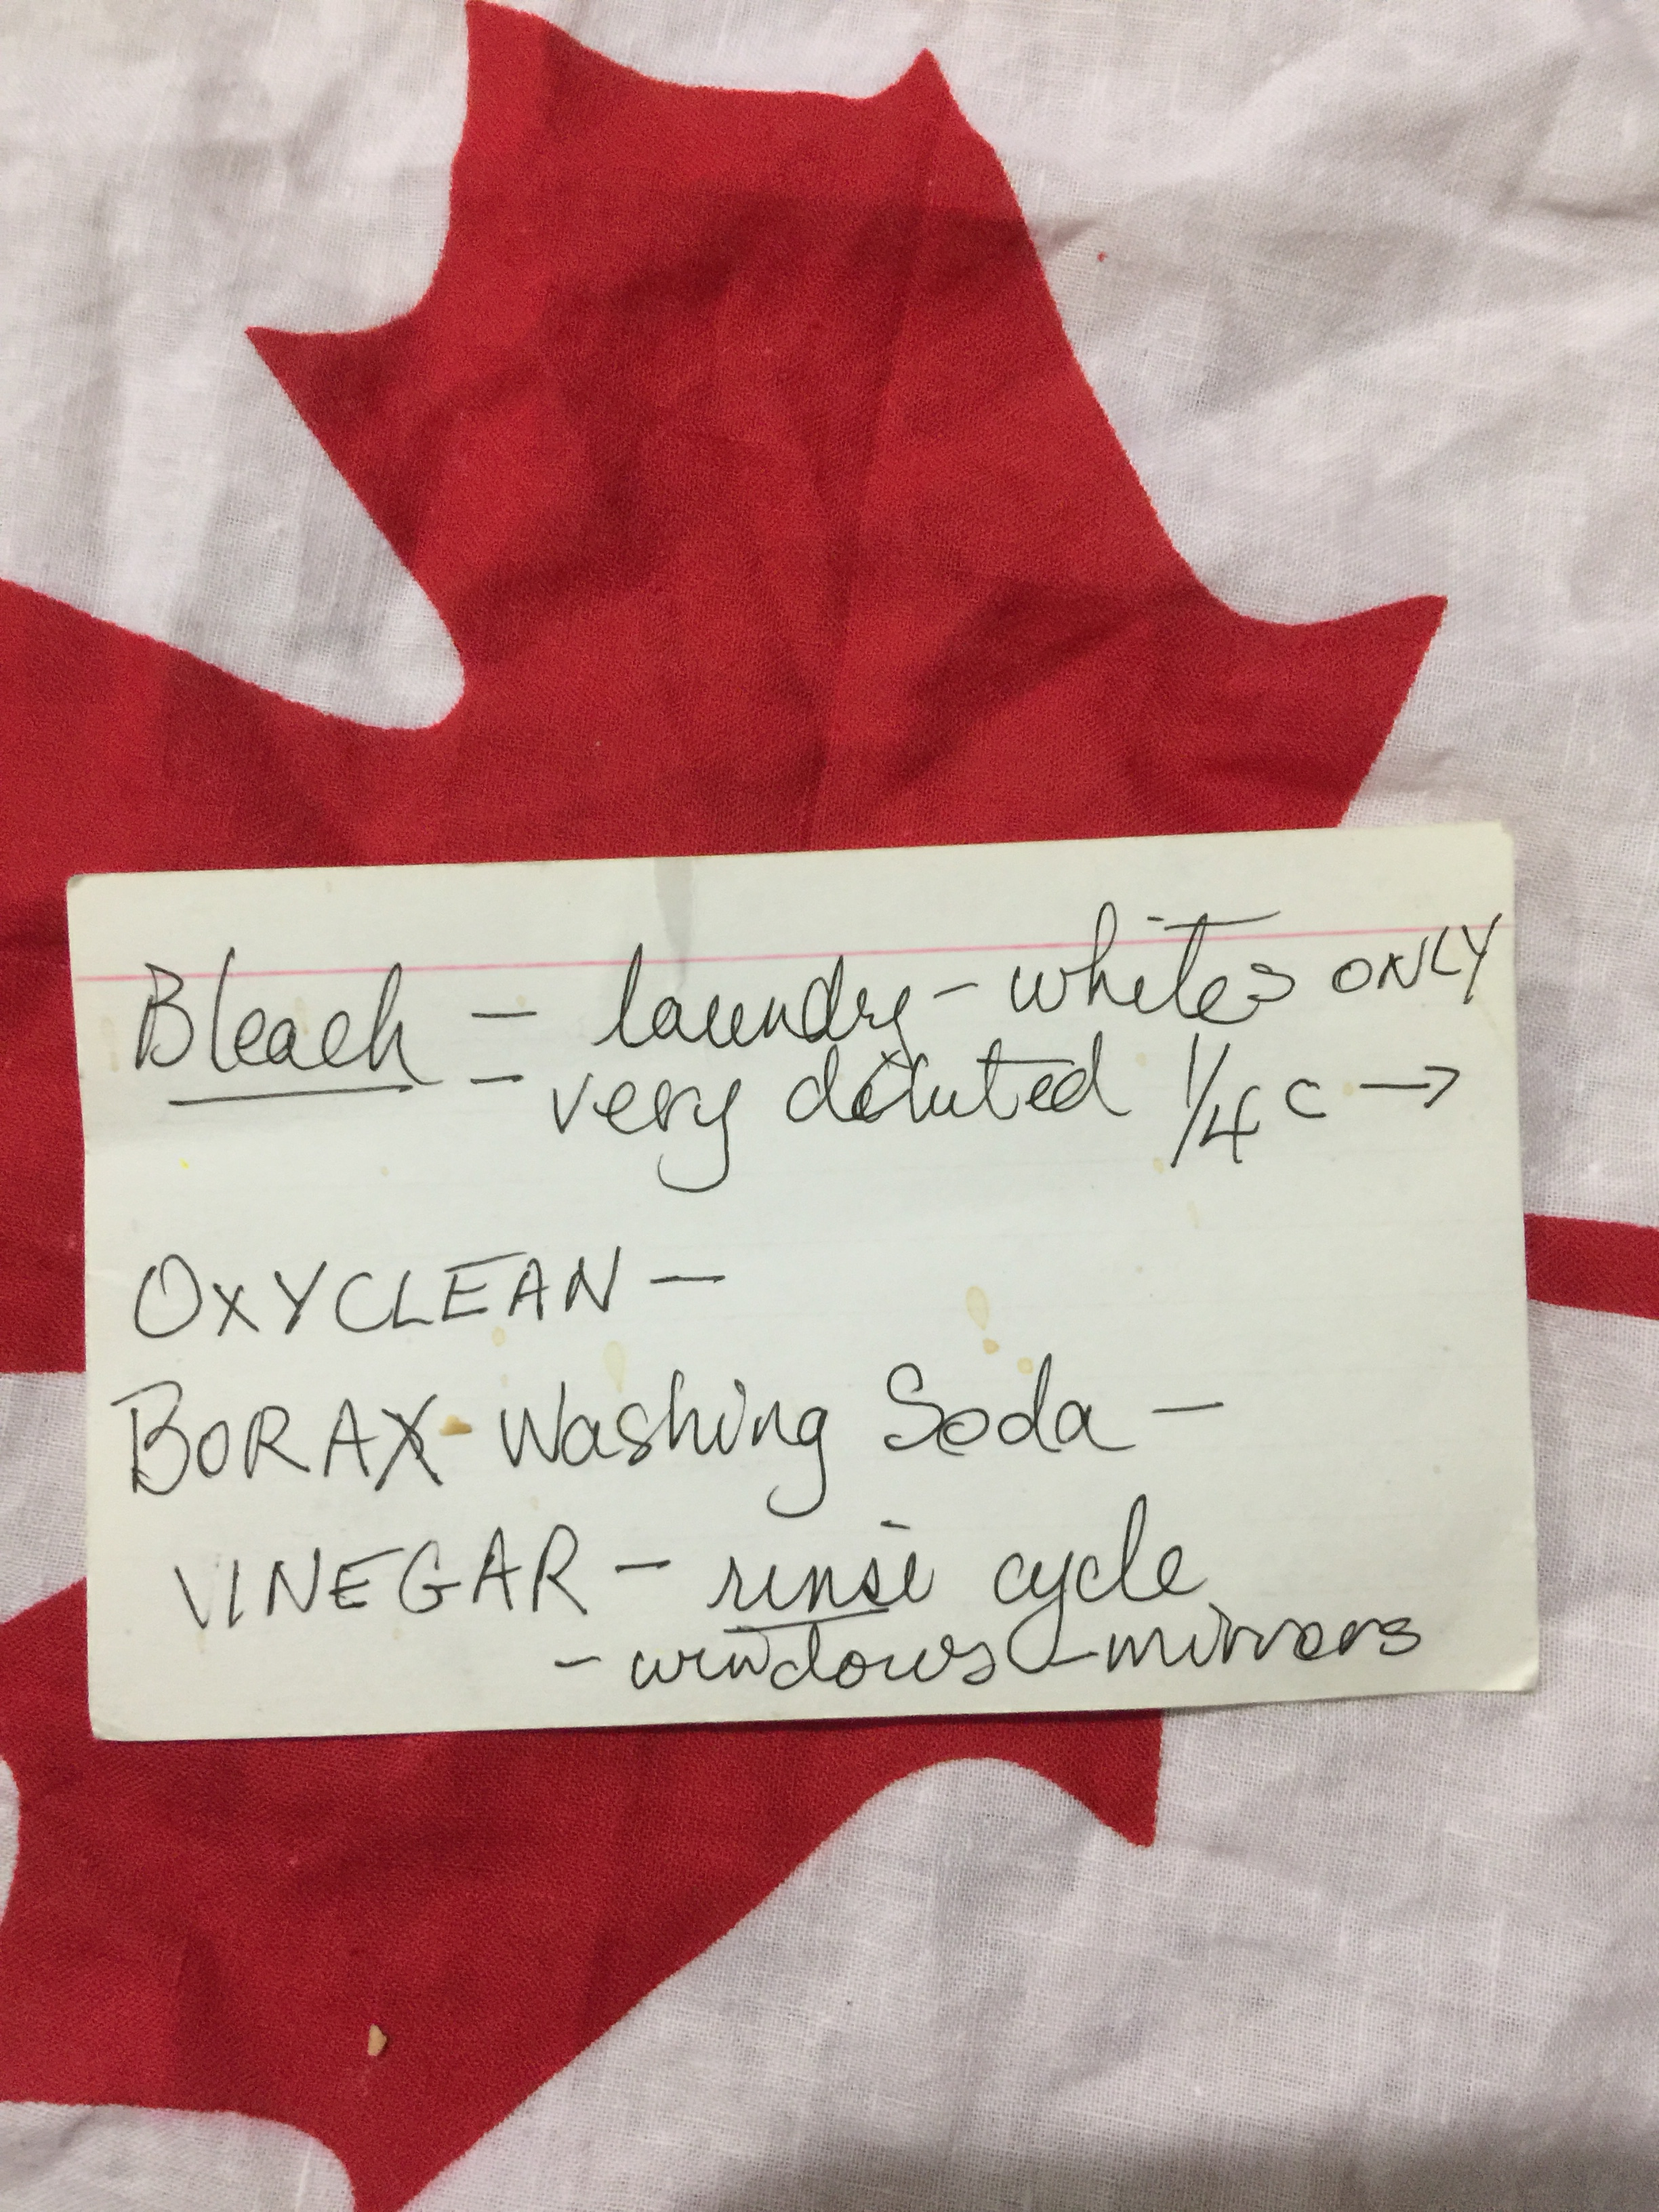 Bleach - laundry - whites ONLY
- very diluted 1/4 c →
OXYCLEAN -
BORAX - Washing Soda -
VINEGAR - rinse cycle
- windows - mirrors